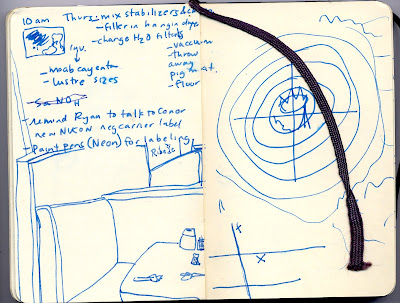 10 am Thurs: mix stabilizers &
- filler in hangin dye
- change H2O filters
inv.
- vaccuum
- throw away pigmat.
- flour
- moab cayenta
- lustre sizes
- Remind Ryan to talk to Conor
new NUKON neg carrier label
- Paint pens (Neon) for labeling
Ribeds
x
x